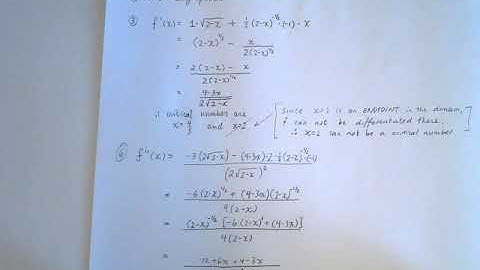 ③ f'(x) = 1·√2-x + ½(2-x)^-½·(-1)·x
= (2-x)^½ - x / 2(2-x)^½
= 2(2-x) - x / 2(2-x)^½
= 4-3x / 2√2-x
∴ critical numbers are
x = 4/3 and x=2
[Since x=2 is an ENDPOINT in the domain,
f can not be differentiated there,
∴ x=2 can not be a critical number.]
f''(x) = -3(2√2-x) - (4-3x)·2·½(2-x)^-½·(-1) / (2√2-x)²
= -6(2-x)^½ + (4-3x)(2-x)^-½ / 4(2-x)
= (2-x)^-½ [-6(2-x)¹ + (4-3x)] / 4(2-x)
= 12+6x+4-3x